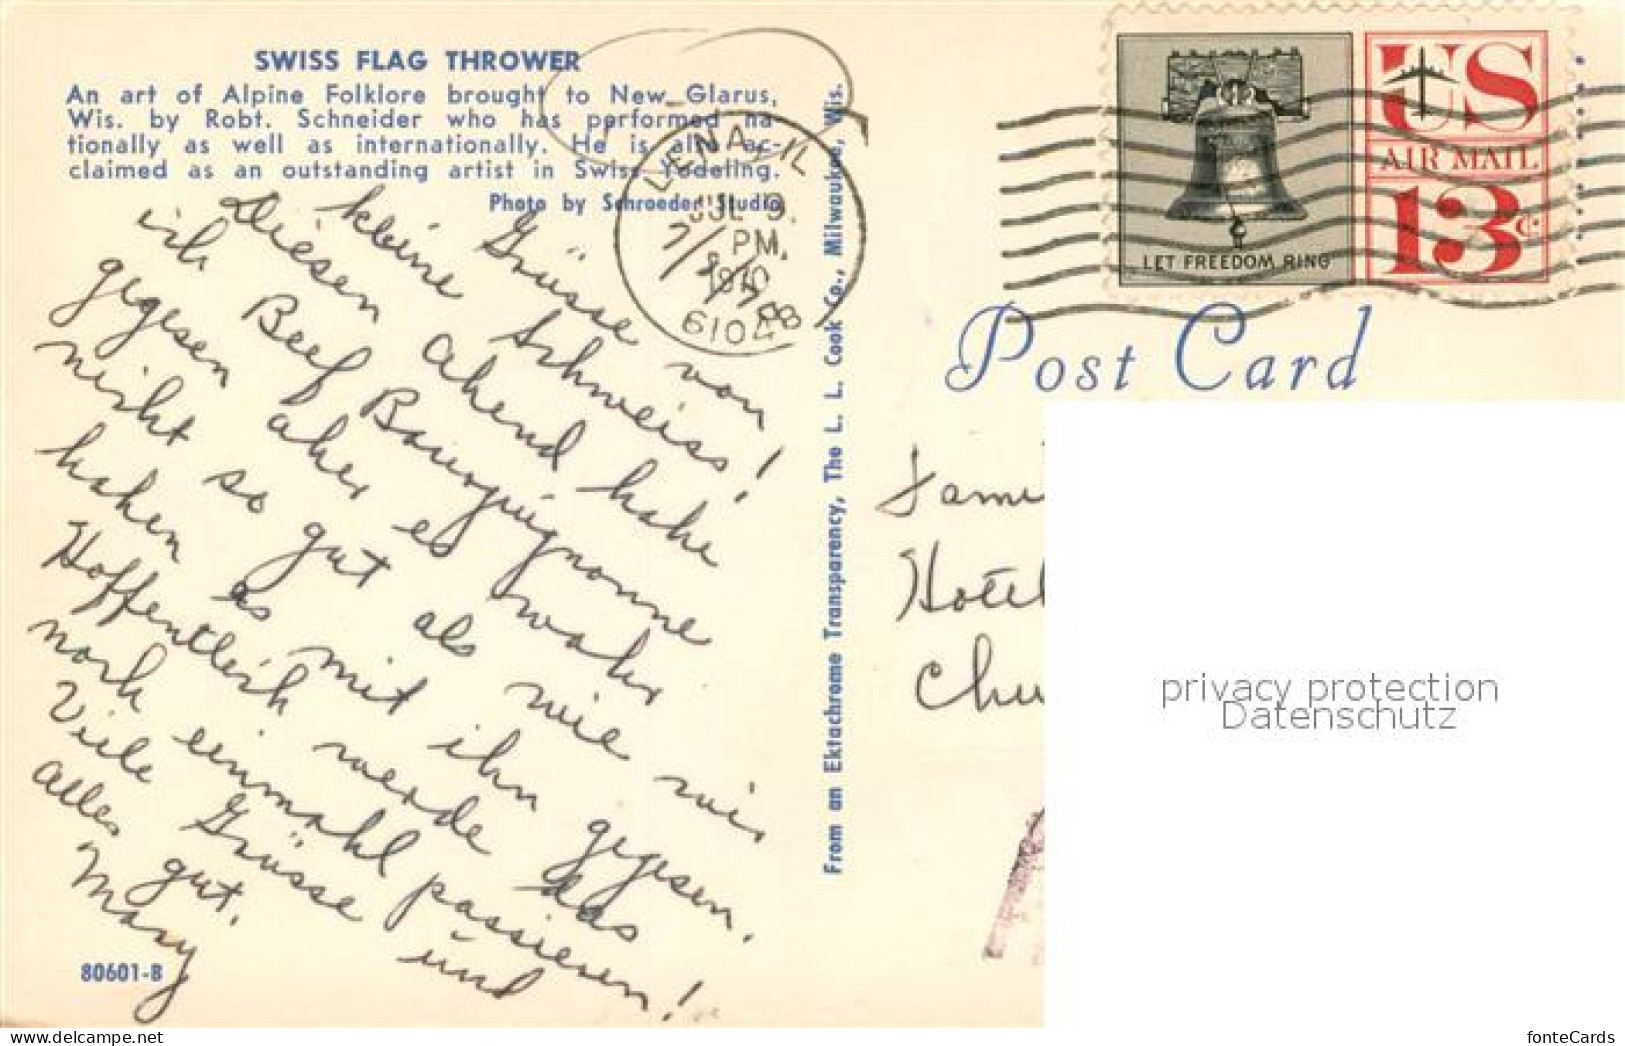 SWISS FLAG THROWER
An art of Alpine Folklore brought to New Glarus,
Wis. by Robt. Schneider who has performed na-
tionally as well as internationally. He is also ac-
claimed as an outstanding artist in Swiss Yodeling.
Photo by Schroeder Studio
kleine Grüsse von
Schweiss!
Diesen abend habe
ich Beef Bourguignonne
gegesen aber es wahr
nicht so gut als wie wir
haben es mit ihn gegesen.
Hoffentlich werde das
noch einmahl passieren!
Viele Grüsse und
alles gut.
Mary
80601-B
From an Ektachrome Transparency, The L. L. Cook Co., Milwaukee, Wis.
LENA, IL
JUL 9
PM
61048
LET FREEDOM RING
US
AIR MAIL
13c
Post Card
Fami
Hotel
Chu
privacy protection
Datenschutz
fonteCards